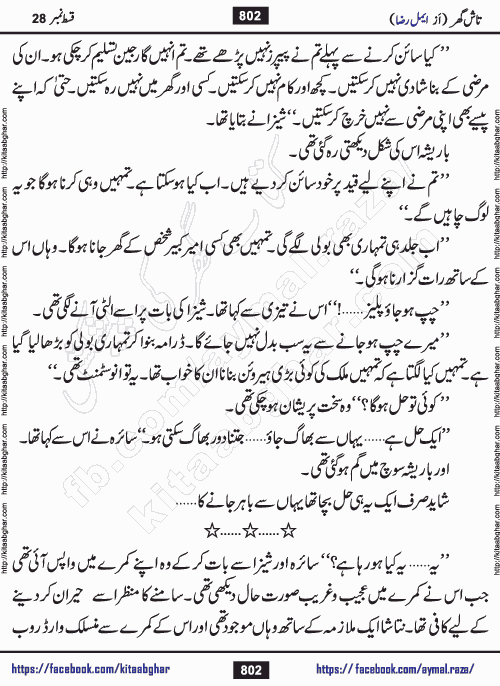 قسط نمبر 28
802
تاش گھر (از ایمل رضا)
’’کیا سائن کرنے سے پہلے تم نے پیپرز نہیں پڑھے تھے۔ تم انہیں گارجین تسلیم کر چکی ہو۔ ان کی
مرضی کے بنا شادی نہیں کر سکتیں۔ کچھ اور کام نہیں کر سکتیں۔ کسی اور گھر میں نہیں رہ سکتیں۔ حتیٰ کہ اپنے
پیسے بھی اپنی مرضی سے نہیں خرچ کر سکتیں۔‘‘ شیزا نے بتایا تھا۔
باریشہ اس کی شکل دیکھتی رہ گئی تھی۔
’’تم نے اپنے لیے قید پر خود سائن کر دیے ہیں۔ اب کیا ہو سکتا ہے۔ تمہیں وہی کرنا ہوگا جو یہ
لوگ چاہیں گے۔‘‘
’’اب جلد ہی تمہاری بھی بولی لگے گی۔ تمہیں بھی کسی امیر کبیر شخص کے گھر جانا ہوگا۔ وہاں اس
کے ساتھ رات گزارنا ہوگی۔‘‘
’’چپ ہو جاؤ پلیز......!‘‘ اس نے تیزی سے کہا تھا۔ شیزا کی بات پر اسے الٹی آنے لگی تھی۔
’’میرے چپ ہو جانے سے یہ سب بدل نہیں جائے گا۔ ڈرامہ بنوا کر تمہاری بولی کو بڑھا لیا گیا
ہے۔ تمہیں کیا لگتا ہے کہ تمہیں ملک کی کوئی بڑی ہیروئن بنانا ان کا خواب تھا۔ یہ تو انوسٹمنٹ تھی۔‘‘
’’کوئی تو حل ہوگا؟‘‘ وہ سخت پریشان ہو چکی تھی۔
’’ایک حل ہے...... یہاں سے بھاگ جاؤ...... جتنا دور بھاگ سکتی ہو۔‘‘ سائرہ نے اس سے کہا تھا۔
اور باریشہ سوچ میں گم ہو گئی تھی۔
شاید صرف ایک یہ ہی حل بچا تھا یہاں سے باہر جانے کا......
☆......☆......☆
’’یہ...... یہ کیا ہو رہا ہے؟‘‘ سائرہ اور شیزا سے بات کر کے وہ اپنے کمرے میں واپس آئی تھی
جب اس نے کمرے میں عجیب و غریب صورت حال دیکھی تھی۔ سامنے کا منظر اسے حیران کر دینے
کے لیے کافی تھا۔ نتاشا ایک ملازمہ کے ساتھ وہاں موجود تھی اور اس کے کمرے سے منسلک وارڈ روب
https://facebook.com/kitaabghar
802
https://facebook.com/aymal.raza/
http://kitaabghar.com
http://kitaabghar.com
http://kitaabghar.com
http://kitaabghar.com
http://kitaabghar.com
http://kitaabghar.com
http://kitaabghar.com
http://kitaabghar.com
fb.com/aymal.raza/
kitaabghar.com